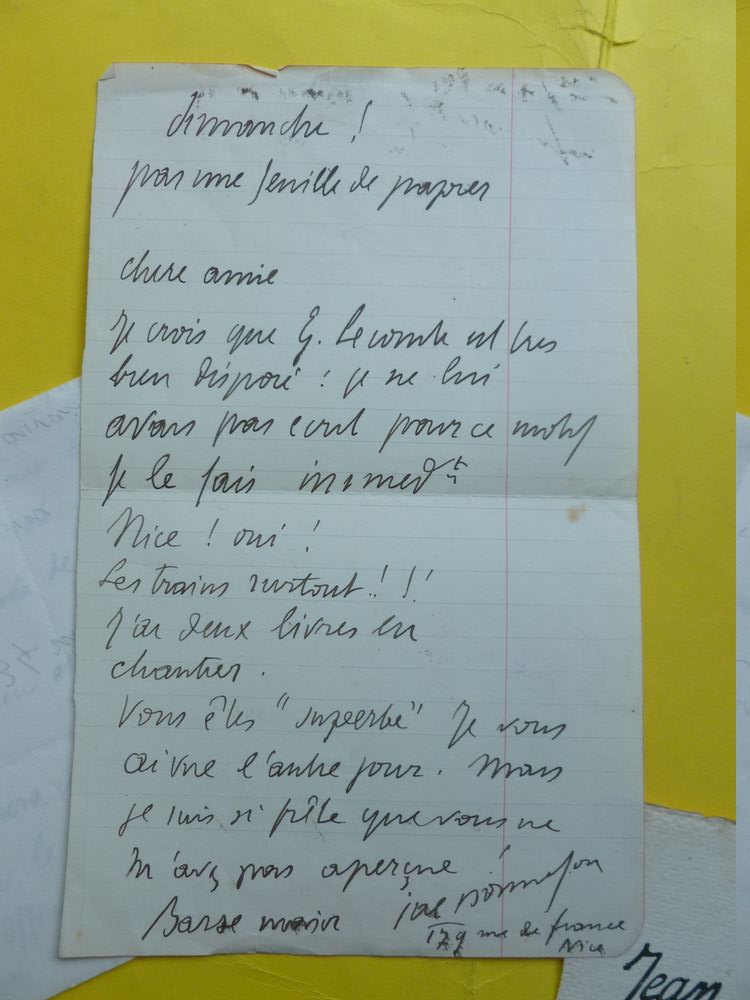 dimanche !
pas une feuille de papier
chere amie
Je crois que G. Lecomte est tres
bien disposé : je ne lui
avais pas ecrit pour ce motif
je le fais immedt
Nice ! oui !
Les trains surtout ! ! !
J'ai deux livres en
chantier.
Vous êtes "superbe" Je vous
ai vue l'autre jour. Mais
je suis si frêle que vous ne
m'avez pas aperçue !
Baise main
179 rue de france
Nice
Jean